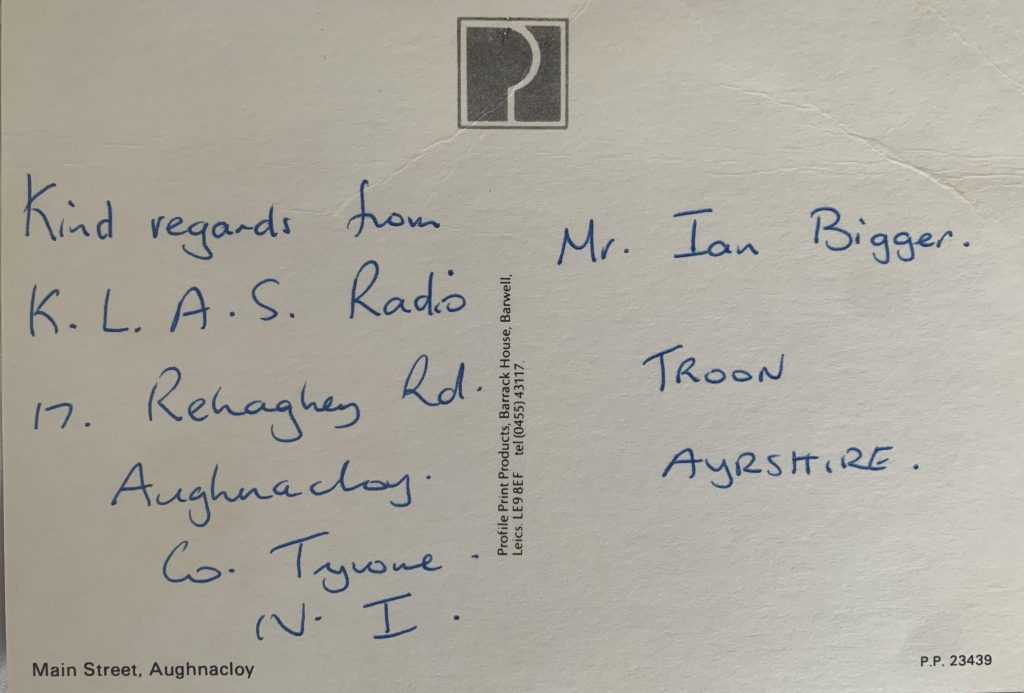 Kind regards from
K. L. A. S. Radio
17. Rehaghey Rd.
Aughnacloy.
Co. Tyrone.
N. I.
Main Street, Aughnacloy
Profile Print Products, Barrack House, Barwell,
Leics. LE9 8EF tel (0455) 43117.
Mr. Ian Bigger.
TROON
AYRSHIRE.
P.P. 23439